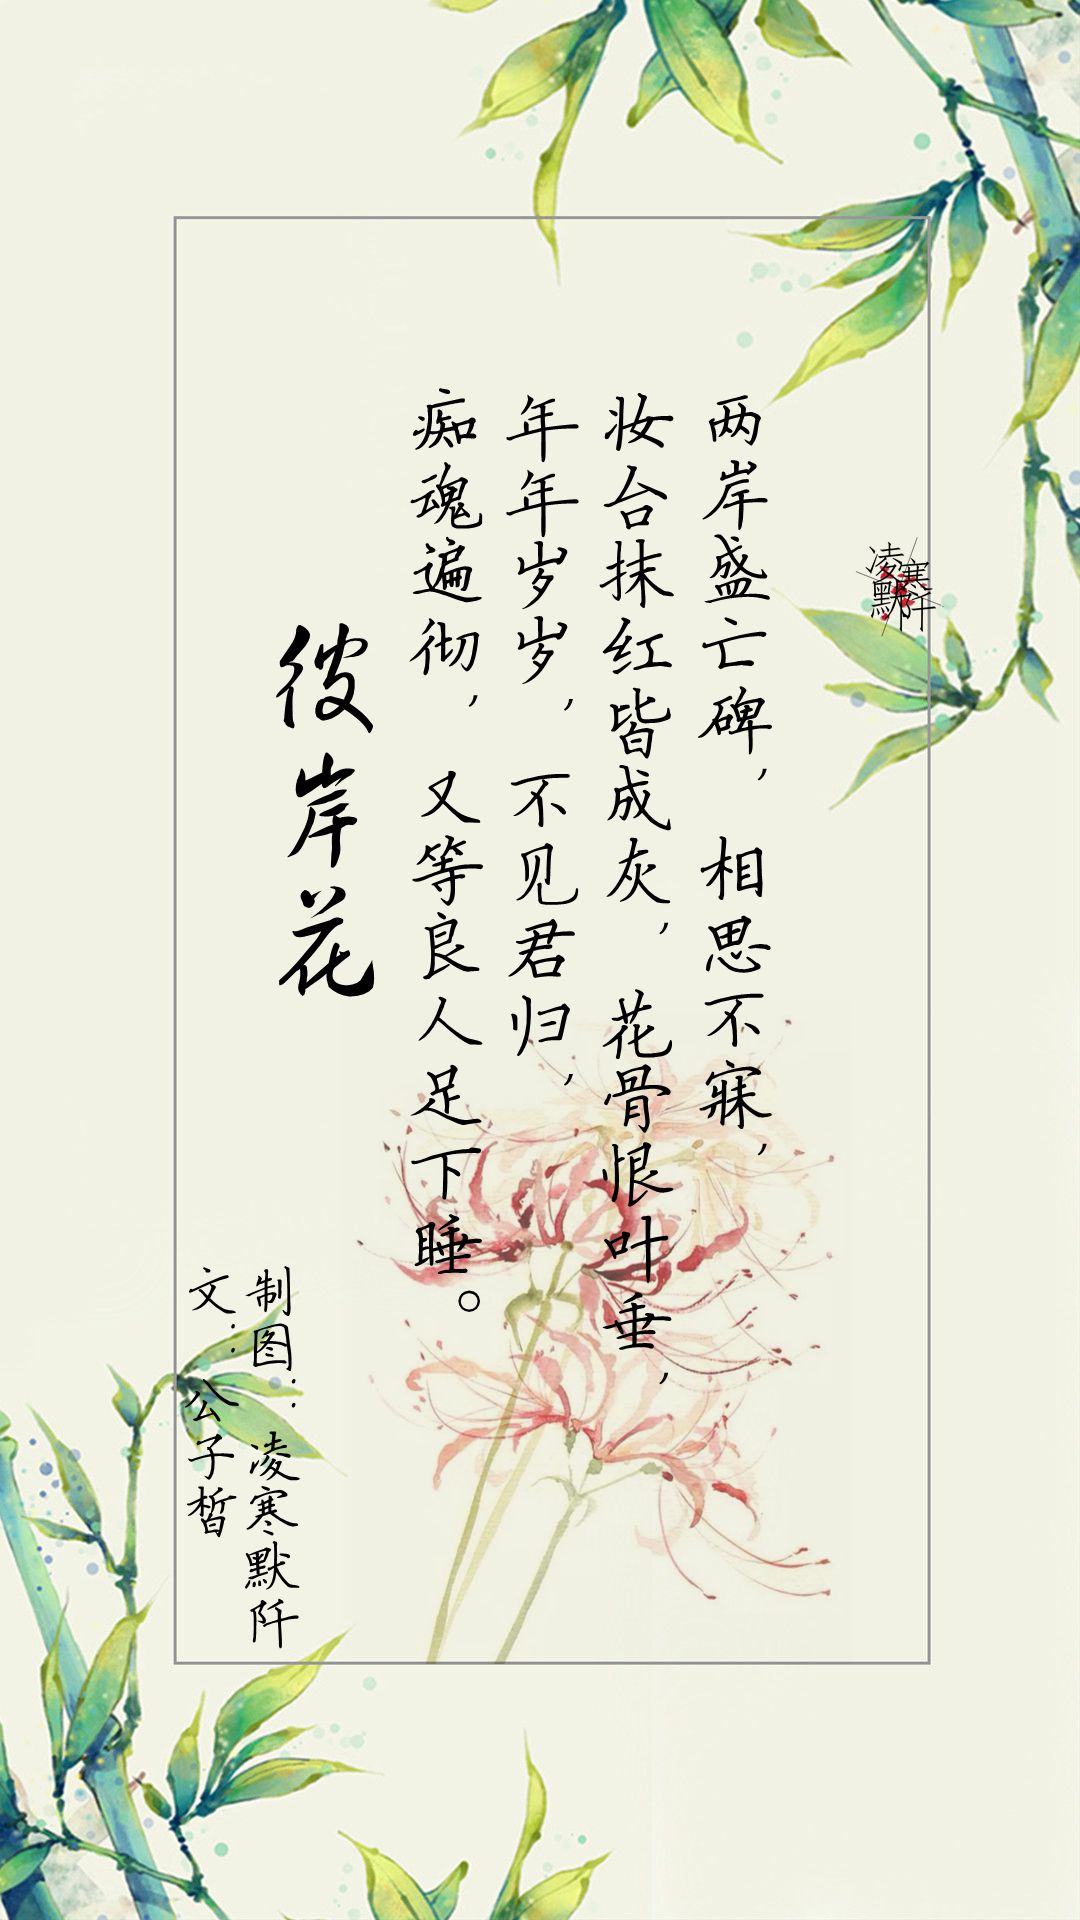 凌寒
默阡
两岸盛亡碑，相思不寐，
妆台抹红皆成灰，花骨恨叶垂，
年年岁岁，不见君归，
痴魂遍彻，又等良人足下睡。
彼岸花
制图：凌寒默阡
文：公子皙